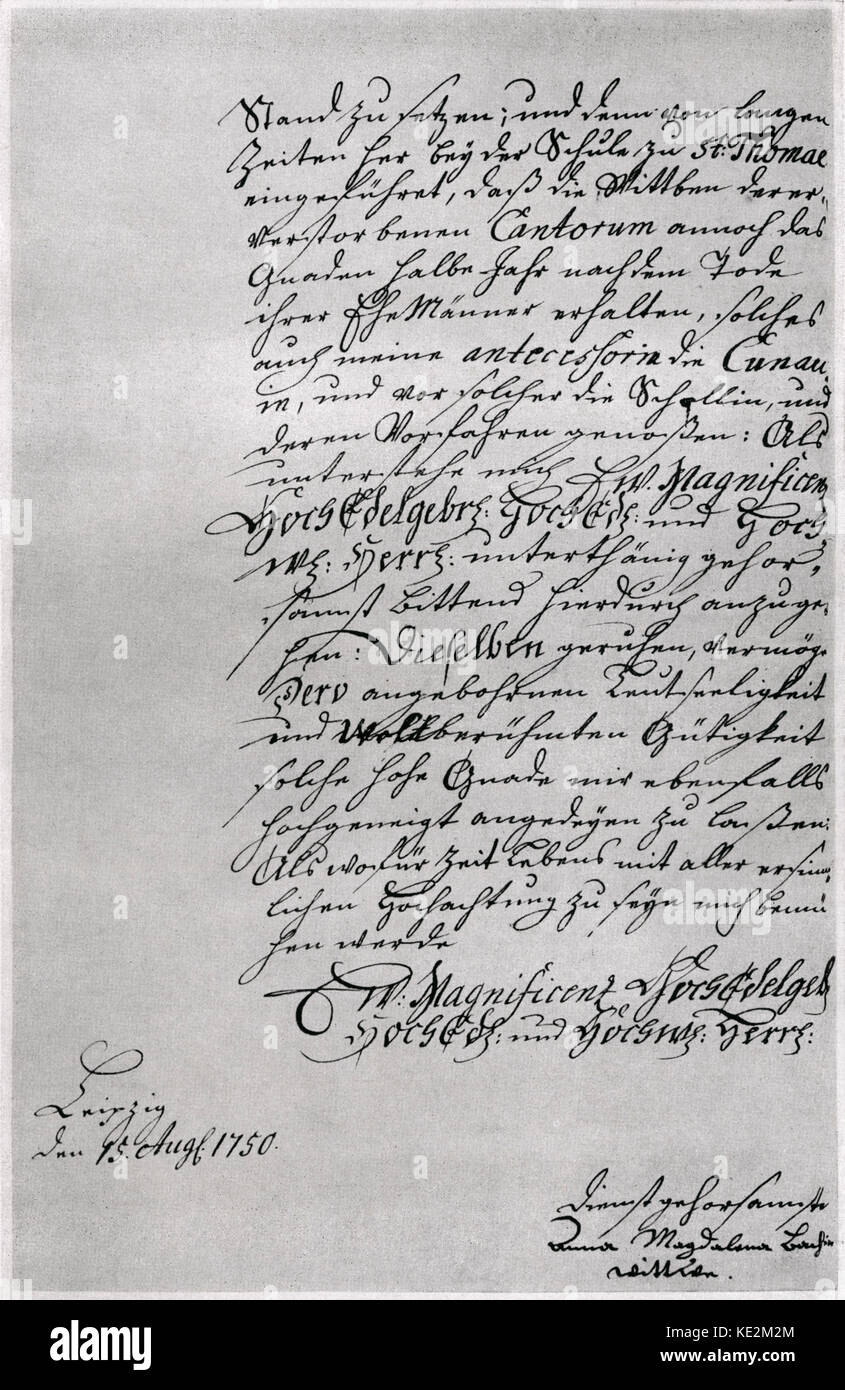 Stand zu setzen; und denn von langen
Zeiten her bey der Schule zu St: Thomae
eingeführet, daß die Wittben derer
verstorbenen Cantorum annoch das
Gnaden halbe Jahr nach dem Tode
ihrer Ehe Männer erhalten, solches
auch meine antecessorin die Cunau-
in, und vor solcher die Schellin, und
deren Vorfahren genoßen: Als
unterstehe mich Ew. Magnificenz
HochEdelgebrl: HochEdl: und Hoch-
wl: Herrl: unterthänig gehor-
samst bittend hierdurch anzuge-
hen: Dieselben geruhen, vermöge
Dero angebohrnen Leutseeligkeit
und Weltberühmten Gütigkeit
solche hohe Gnade mir ebenfalls
hochgeneigt angedeyen zu laßen.
Als wofür Zeit Lebens mit aller ersinn-
lichen Hochachtung zu seyn mich bemü
hen werde
Ew: Magnificenz HochEdelgeb
HochEdl: und Hochwl: Herrl:
Leipzig
den 15. Aug: 1750.
Dienstgehorsamste
Anna Magdalena Bachin
Wittbe.
alamy
a
alamy stock photo
KE2M2M
www.alamy.com